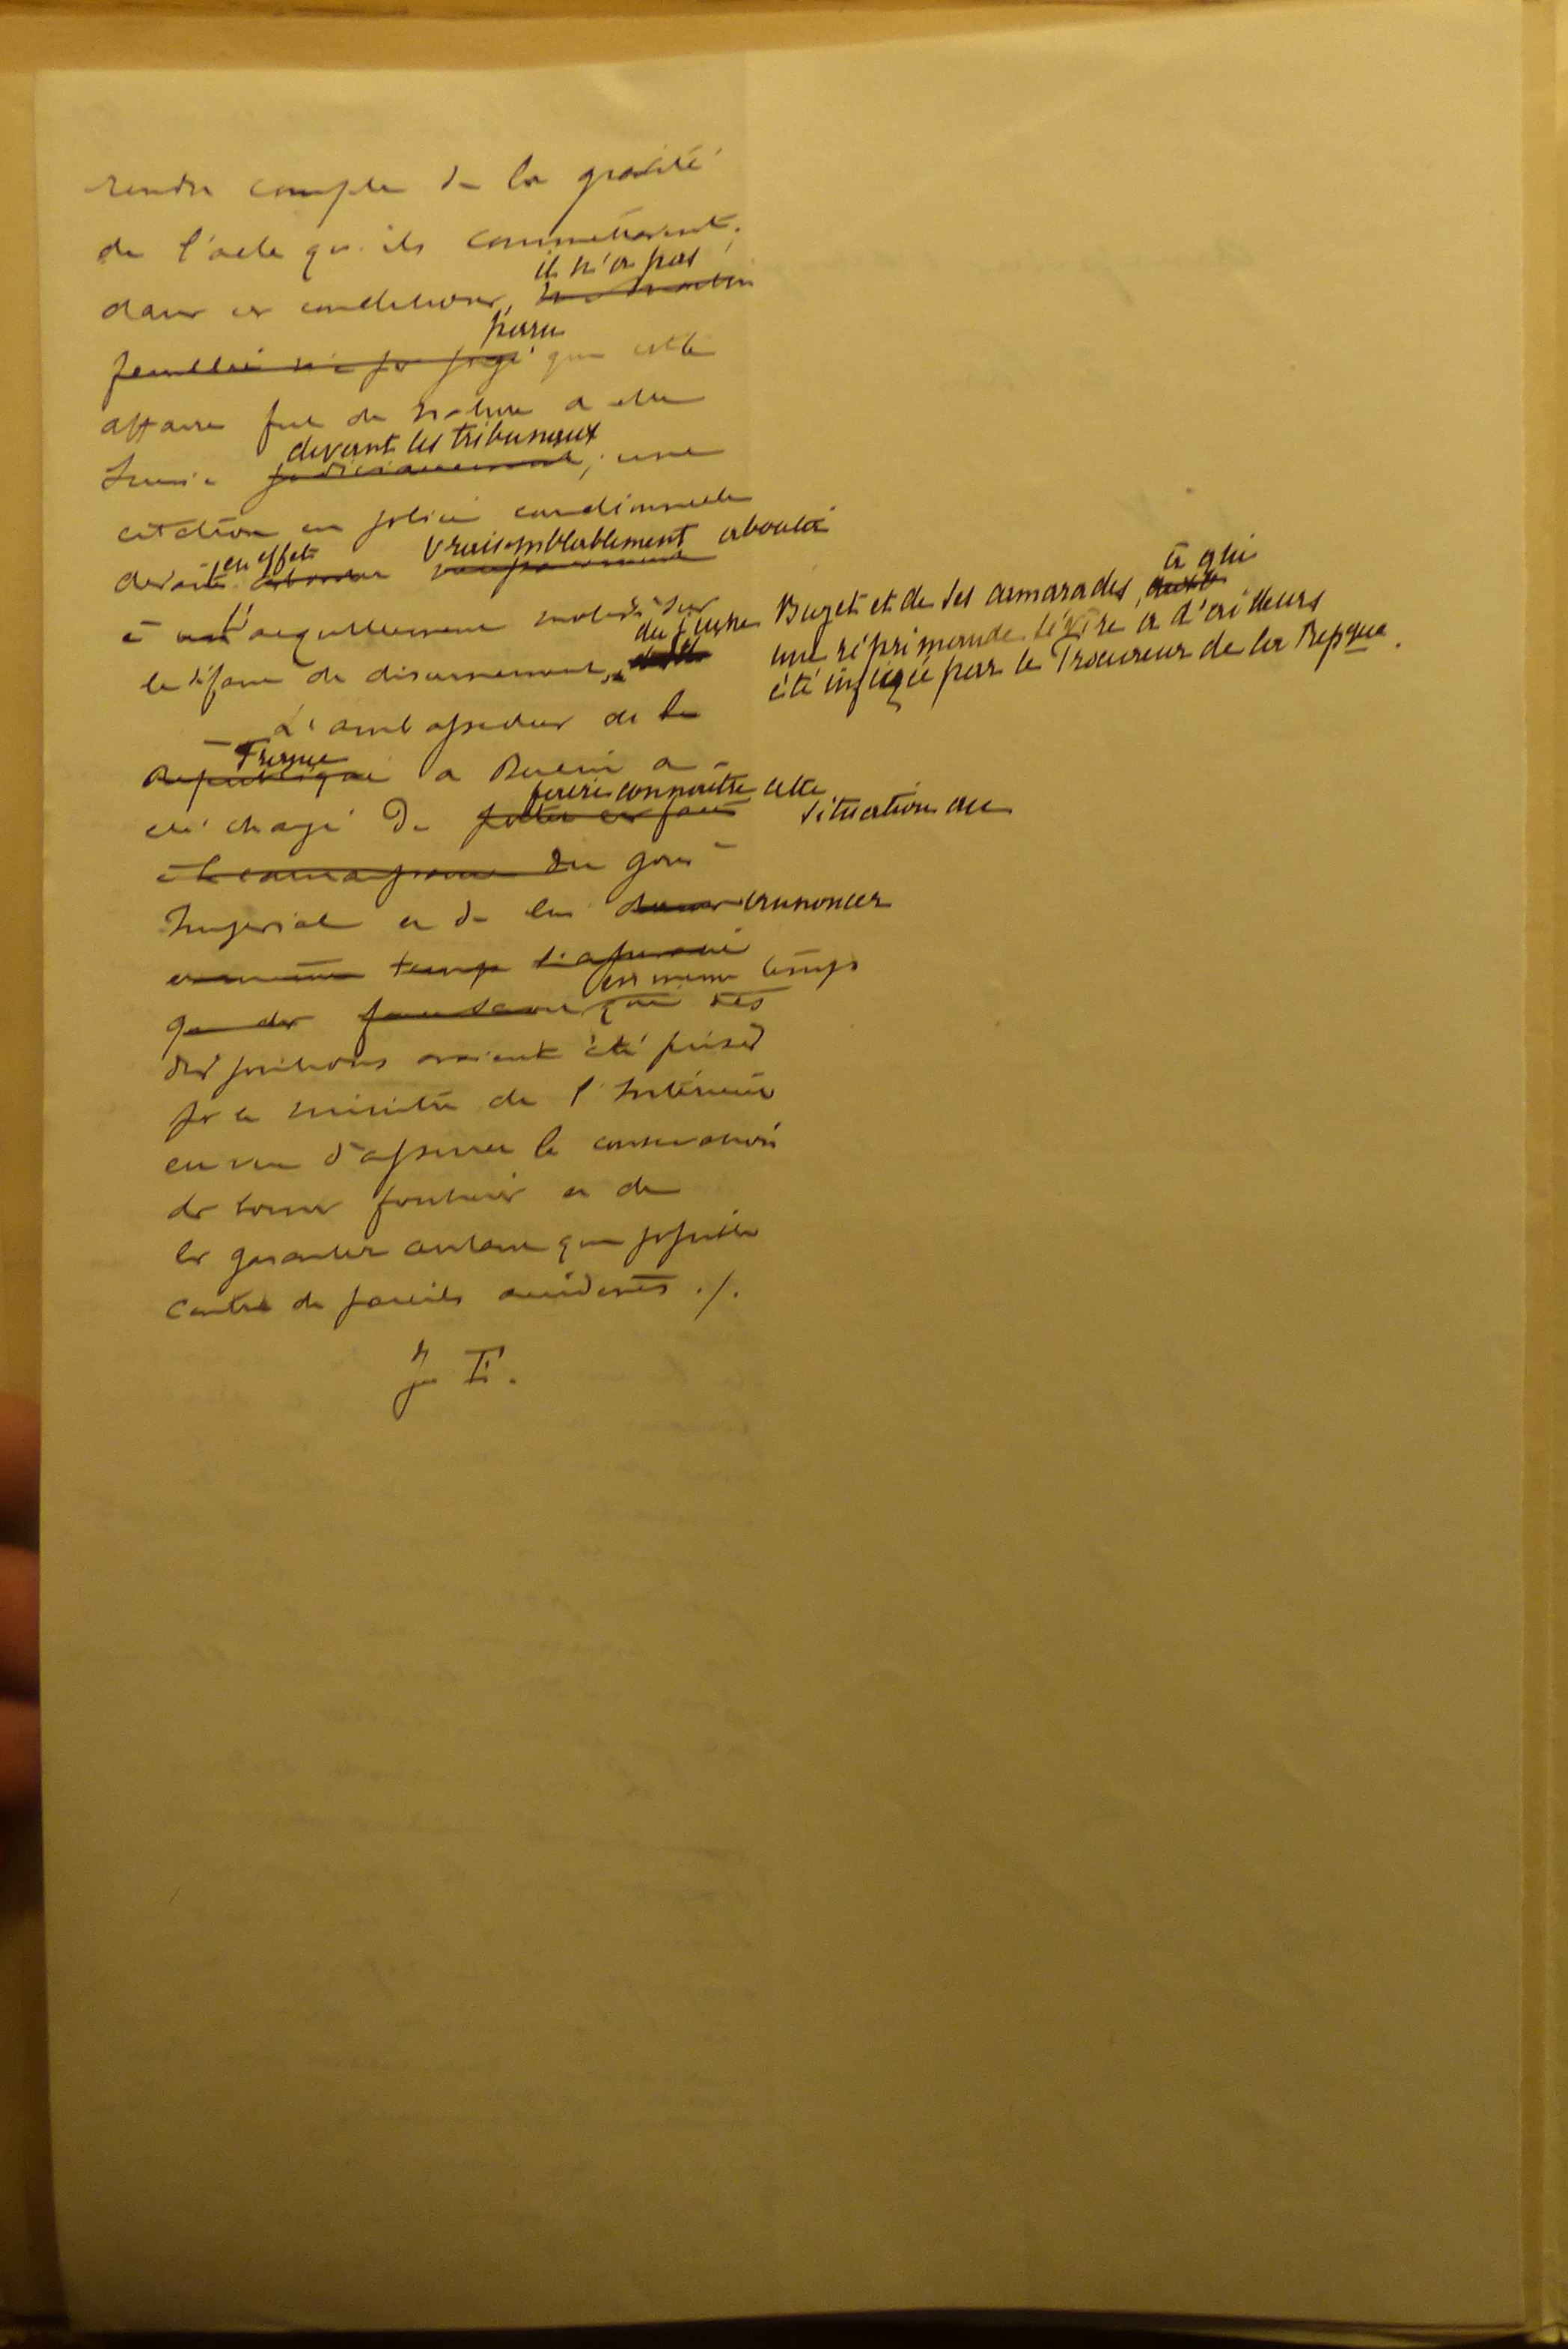 rendre compte de la gravité
de l'acte qu'ils commettaient;
il n'a pas
dans ces conditions,
paru
que cette
affaire fut de nature a etre
devant les tribunaux
suivie judiciairement, une
citation en police correctionnelle
en effet vraisemblablement aboutir
devait
à l'acquittement motivé sur
le défaut de discernement, du jeune Buget et de ses camarades, à qui
une réprimande sévère a d'ailleurs
été infligée par le Procureur de la Repque.
L'ambassadeur de
France
République a Berlin a
faire connaître cette
été chargé de porter ces faits situation au
à la connaissance du gouvt
Impérial et de lui donner annoncer
en même temps l'assurance
en même temps
que des que des
dispositions avaient été prises
par le ministre de l'Intérieur
en vue d'assurer la conservation
des bornes frontières et de
les garantir autant que possible
contre de pareils accidents ./.